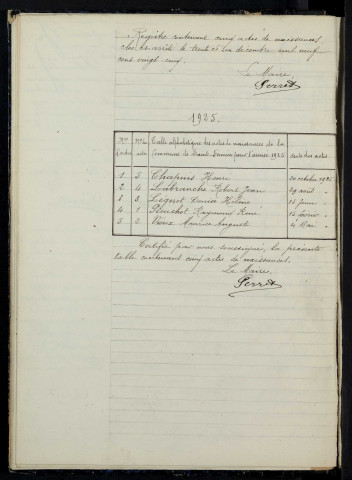 Registre contenant cinq actes de naissances
clos et arrêté le trente et un décembre mil neuf
cent vingt cinq.
Le Maire
Perret
1925.
Nos d'ordre Nos des actes Table alphabétique des actes de naissances de la Commune de pour l'année 1925 Date des actes
1 5 Chapuis Henri 20 octobre 1925
2 4 Labranche Robert Jean 29 août "
3 3 Legros Denise Hélène 15 juin "
4 1 Pluchot Raymond René 15 février "
5 2 Vieux Maurice August 4 Mai "
Certifié par nous soussigné, la présente
table contenant cinq actes de naissances.
Le Maire.
Perret